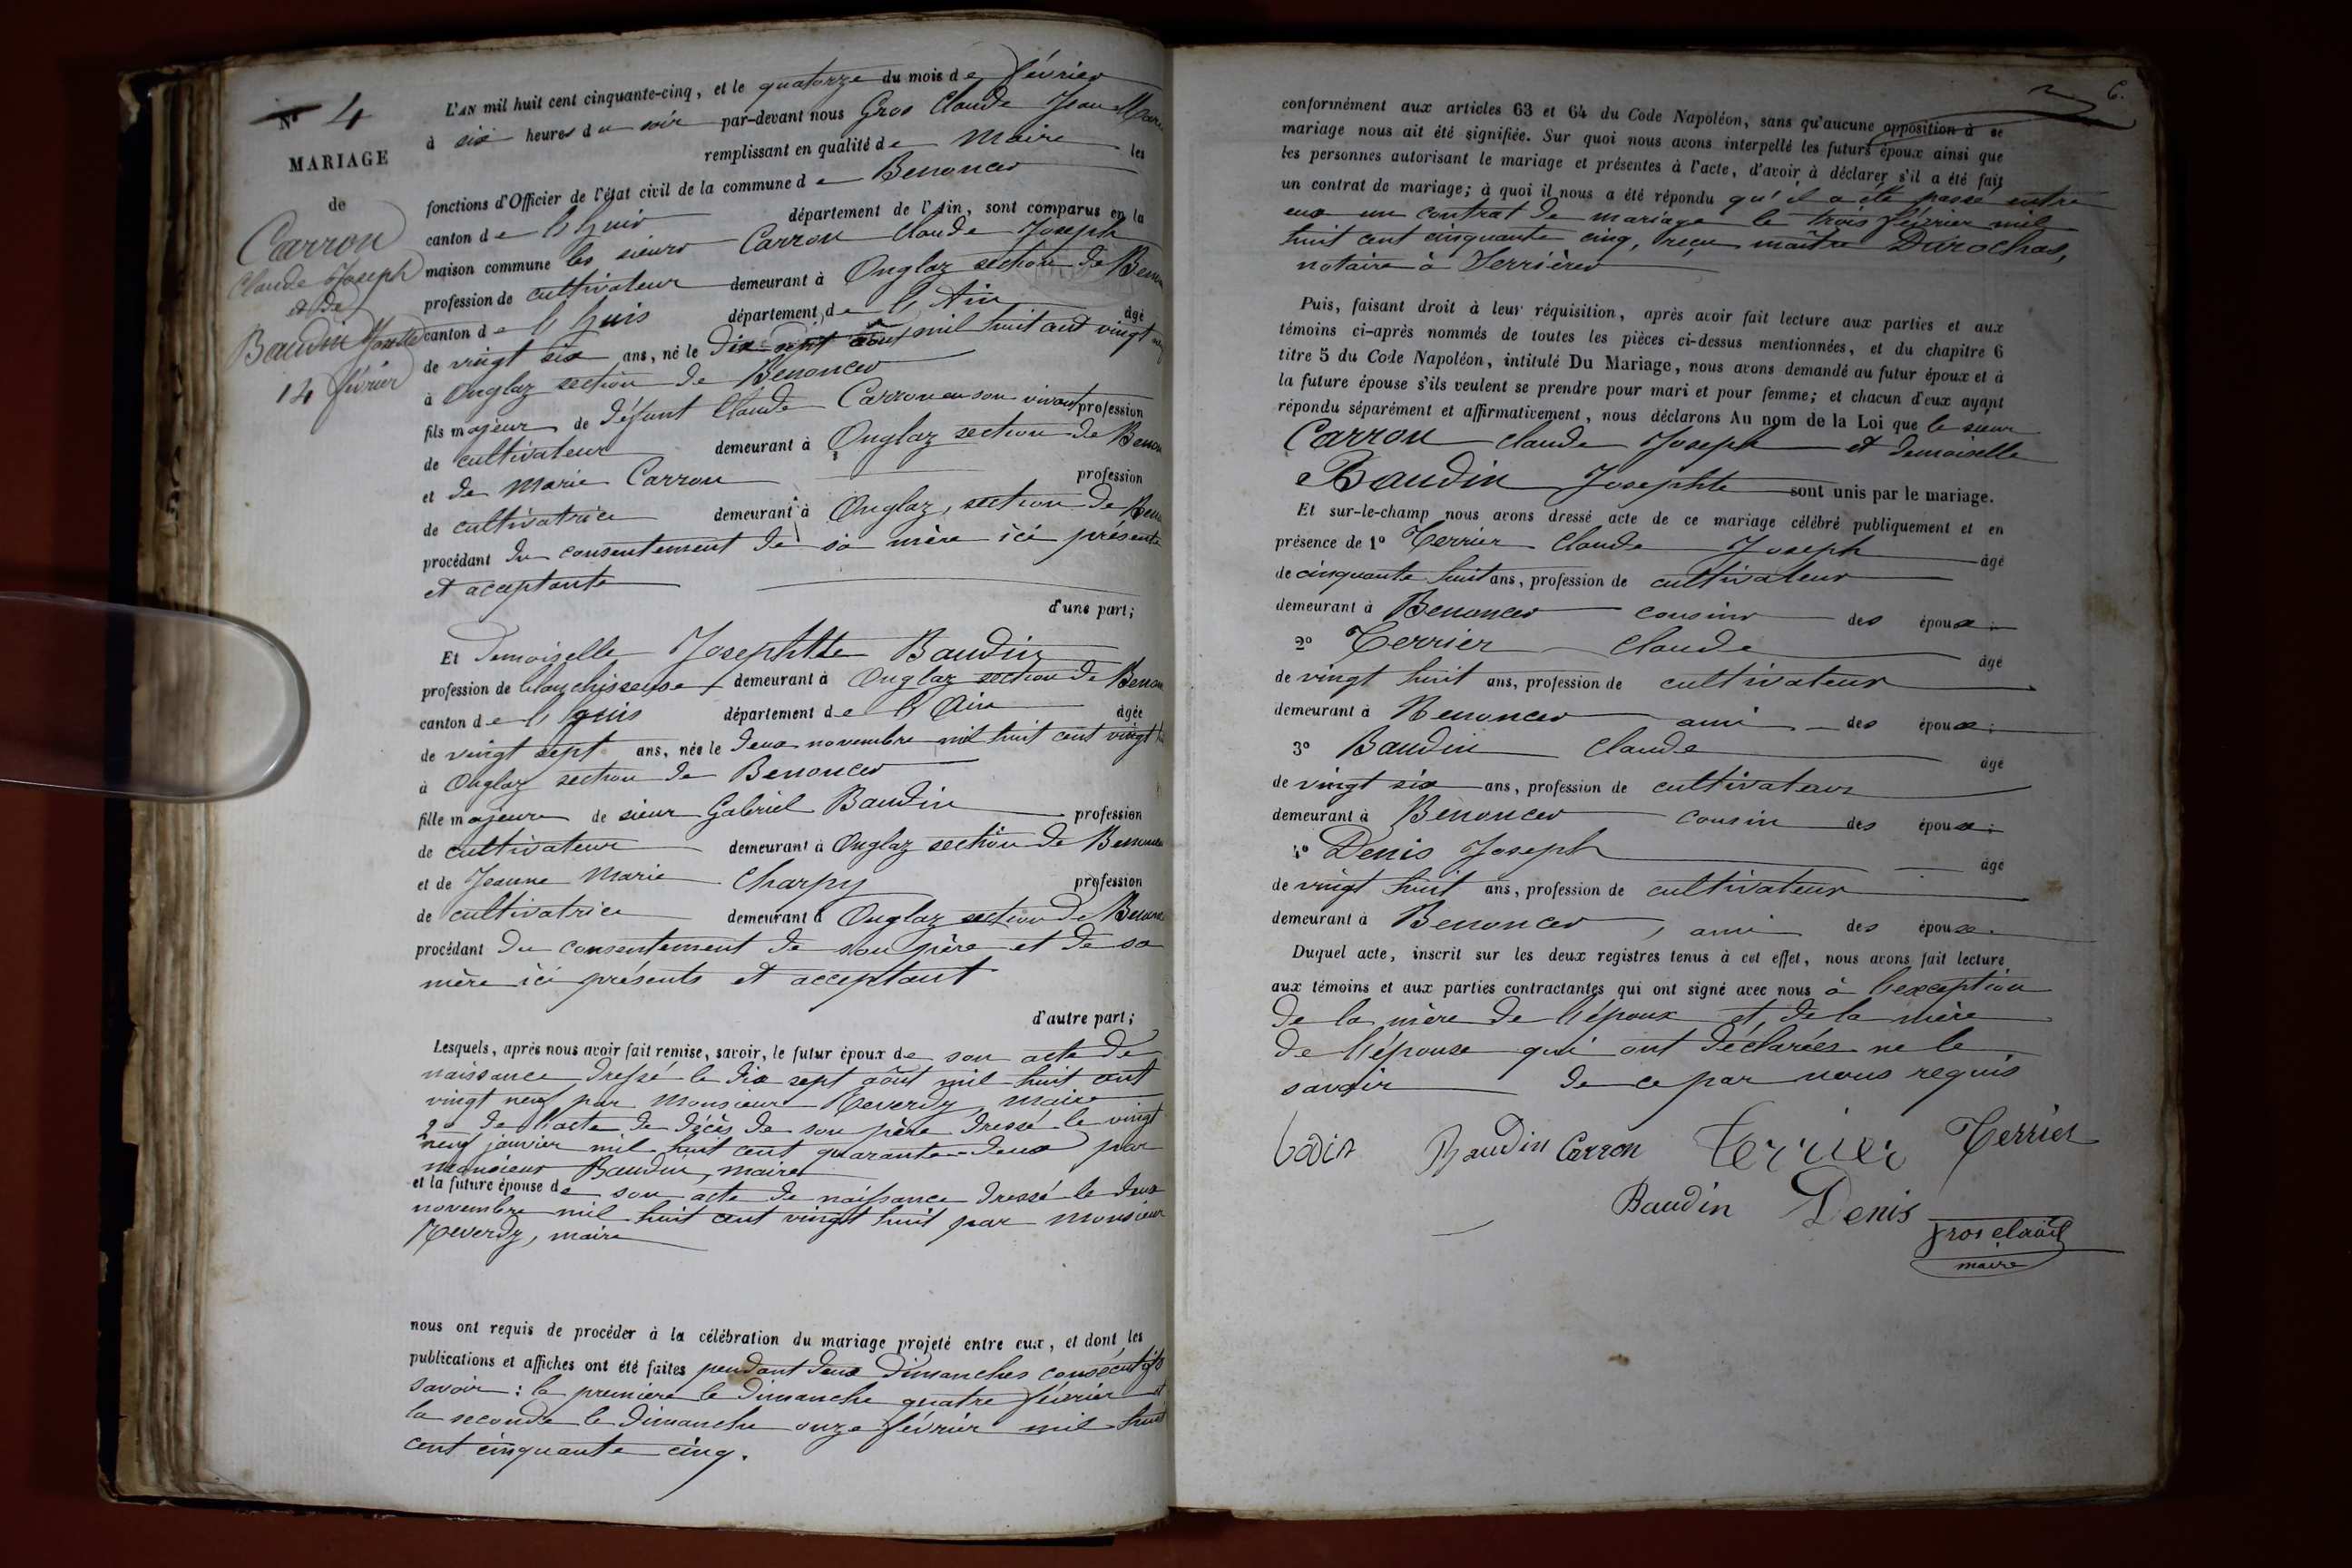 N° 4
MARIAGE
de
Carron
Claude Joseph
et de
Baudin Josephte
14 février
L'AN mil huit cent cinquante-cinq, et le quatorze du mois de février
à six heures du soir par-devant nous Gros Claude Jean Marie
remplissant en qualité de Maire les
fonctions d'Officier de l'état civil de la commune de Benonces
canton de l'huis département de l'Ain, sont comparus en la
maison commune les sieurs Carron Claude Joseph
profession de cultivateur demeurant à Onglaz section de Benon
canton de l'huis département de l'Ain âgé
de vingt six ans, né le dix-sept août mil huit cent vingt neuf
à Onglaz section de Benonces
fils majeur de défunt Claude Carron en son vivant profession
de cultivateur demeurant à Onglaz section de Benon
et de Marie Carron profession
de cultivatrice demeurant à Onglaz, section de Benon
procédant du consentement de sa mère ici présente
et acceptante
d'une part;
Et Demoiselle Josephtte Baudin
profession de blanchisseuse demeurant à Onglaz section de Benon
canton de l'huis département de l'Ain âgée
de vingt sept ans, née le deux novembre mil huit cent vingt
à Onglaz section de Benonces
fille majeure de sieur Gabriel Baudin profession
de cultivateur demeurant à Onglaz section de Benonces
et de Jeanne Marie Charpy profession
de cultivatrice demeurant à Onglaz section de Benon
procédant du consentement de son père et de sa
mère ici présents et acceptant
d'autre part;
Lesquels, après nous avoir fait remise, savoir, le futur époux de son acte de
naissance dressé le dix sept août mil huit cent
vingt neuf par Monsieur Reverdy, maire
2° de l'acte de décès de son père dressé le vingt
neuf janvier mil huit cent quarante-deux par
monsieur Baudin, maire
et la future épouse de son acte de naissance dressé le deux
novembre mil huit cent vingt huit par Monsieur
Reverdy, maire
nous ont requis de procéder à la célébration du mariage projeté entre eux, et dont les
publications et affiches ont été faites pendant deux Dimanches consécutifs
savoir : la première le Dimanche quatre février et
la seconde le Dimanche onze février mil huit
cent cinquante cinq.
6.
conformément aux articles 63 et 64 du Code Napoléon, sans qu'aucune opposition à ce
mariage nous ait été signifiée. Sur quoi nous avons interpellé les futurs époux ainsi que
les personnes autorisant le mariage et présentes à l'acte, d'avoir à déclarer s'il a été fait
un contrat de mariage; à quoi il nous a été répondu qu'il a été passé entre
eux un contrat de mariage le trois février mil
huit cent cinquante cinq, reçu maître Durochas,
notaire à Serrières
Puis, faisant droit à leur réquisition, après avoir fait lecture aux parties et aux
témoins ci-après nommés de toutes les pièces ci-dessus mentionnées, et du chapitre 6
titre 5 du Code Napoléon, intitulé Du Mariage, nous avons demandé au futur époux et à
la future épouse s'ils veulent se prendre pour mari et pour femme; et chacun d'eux ayant
répondu séparément et affirmativement, nous déclarons Au nom de la Loi que le sieur
Carron Claude Joseph et demoiselle
Baudin Josephte sont unis par le mariage.
Et sur-le-champ nous avons dressé acte de ce mariage célébré publiquement et en
présence de 1° Terrier Claude Joseph âgé
de cinquante huit ans, profession de cultivateur
demeurant à Benonces cousins des époux.
2° Terrier Claude âgé
de vingt huit ans, profession de cultivateur
demeurant à Benonces ami des époux;
3° Baudin Claude âgé
de vingt six ans, profession de cultivateur
demeurant à Benonces cousin des époux;
4° Denis Joseph âgé
de vingt huit ans, profession de cultivateur
demeurant à Benonces, ami des époux.
Duquel acte, inscrit sur les deux registres tenus à cet effet, nous avons fait lecture
aux témoins et aux parties contractantes qui ont signé avec nous à l'exception
de la mère de l'époux et de la mère
de l'épouse qui ont déclarées ne le
savoir de ce par nous requis
Bodin Baudin Carron Terrier Terrier
Baudin Denis
gros claude
maire